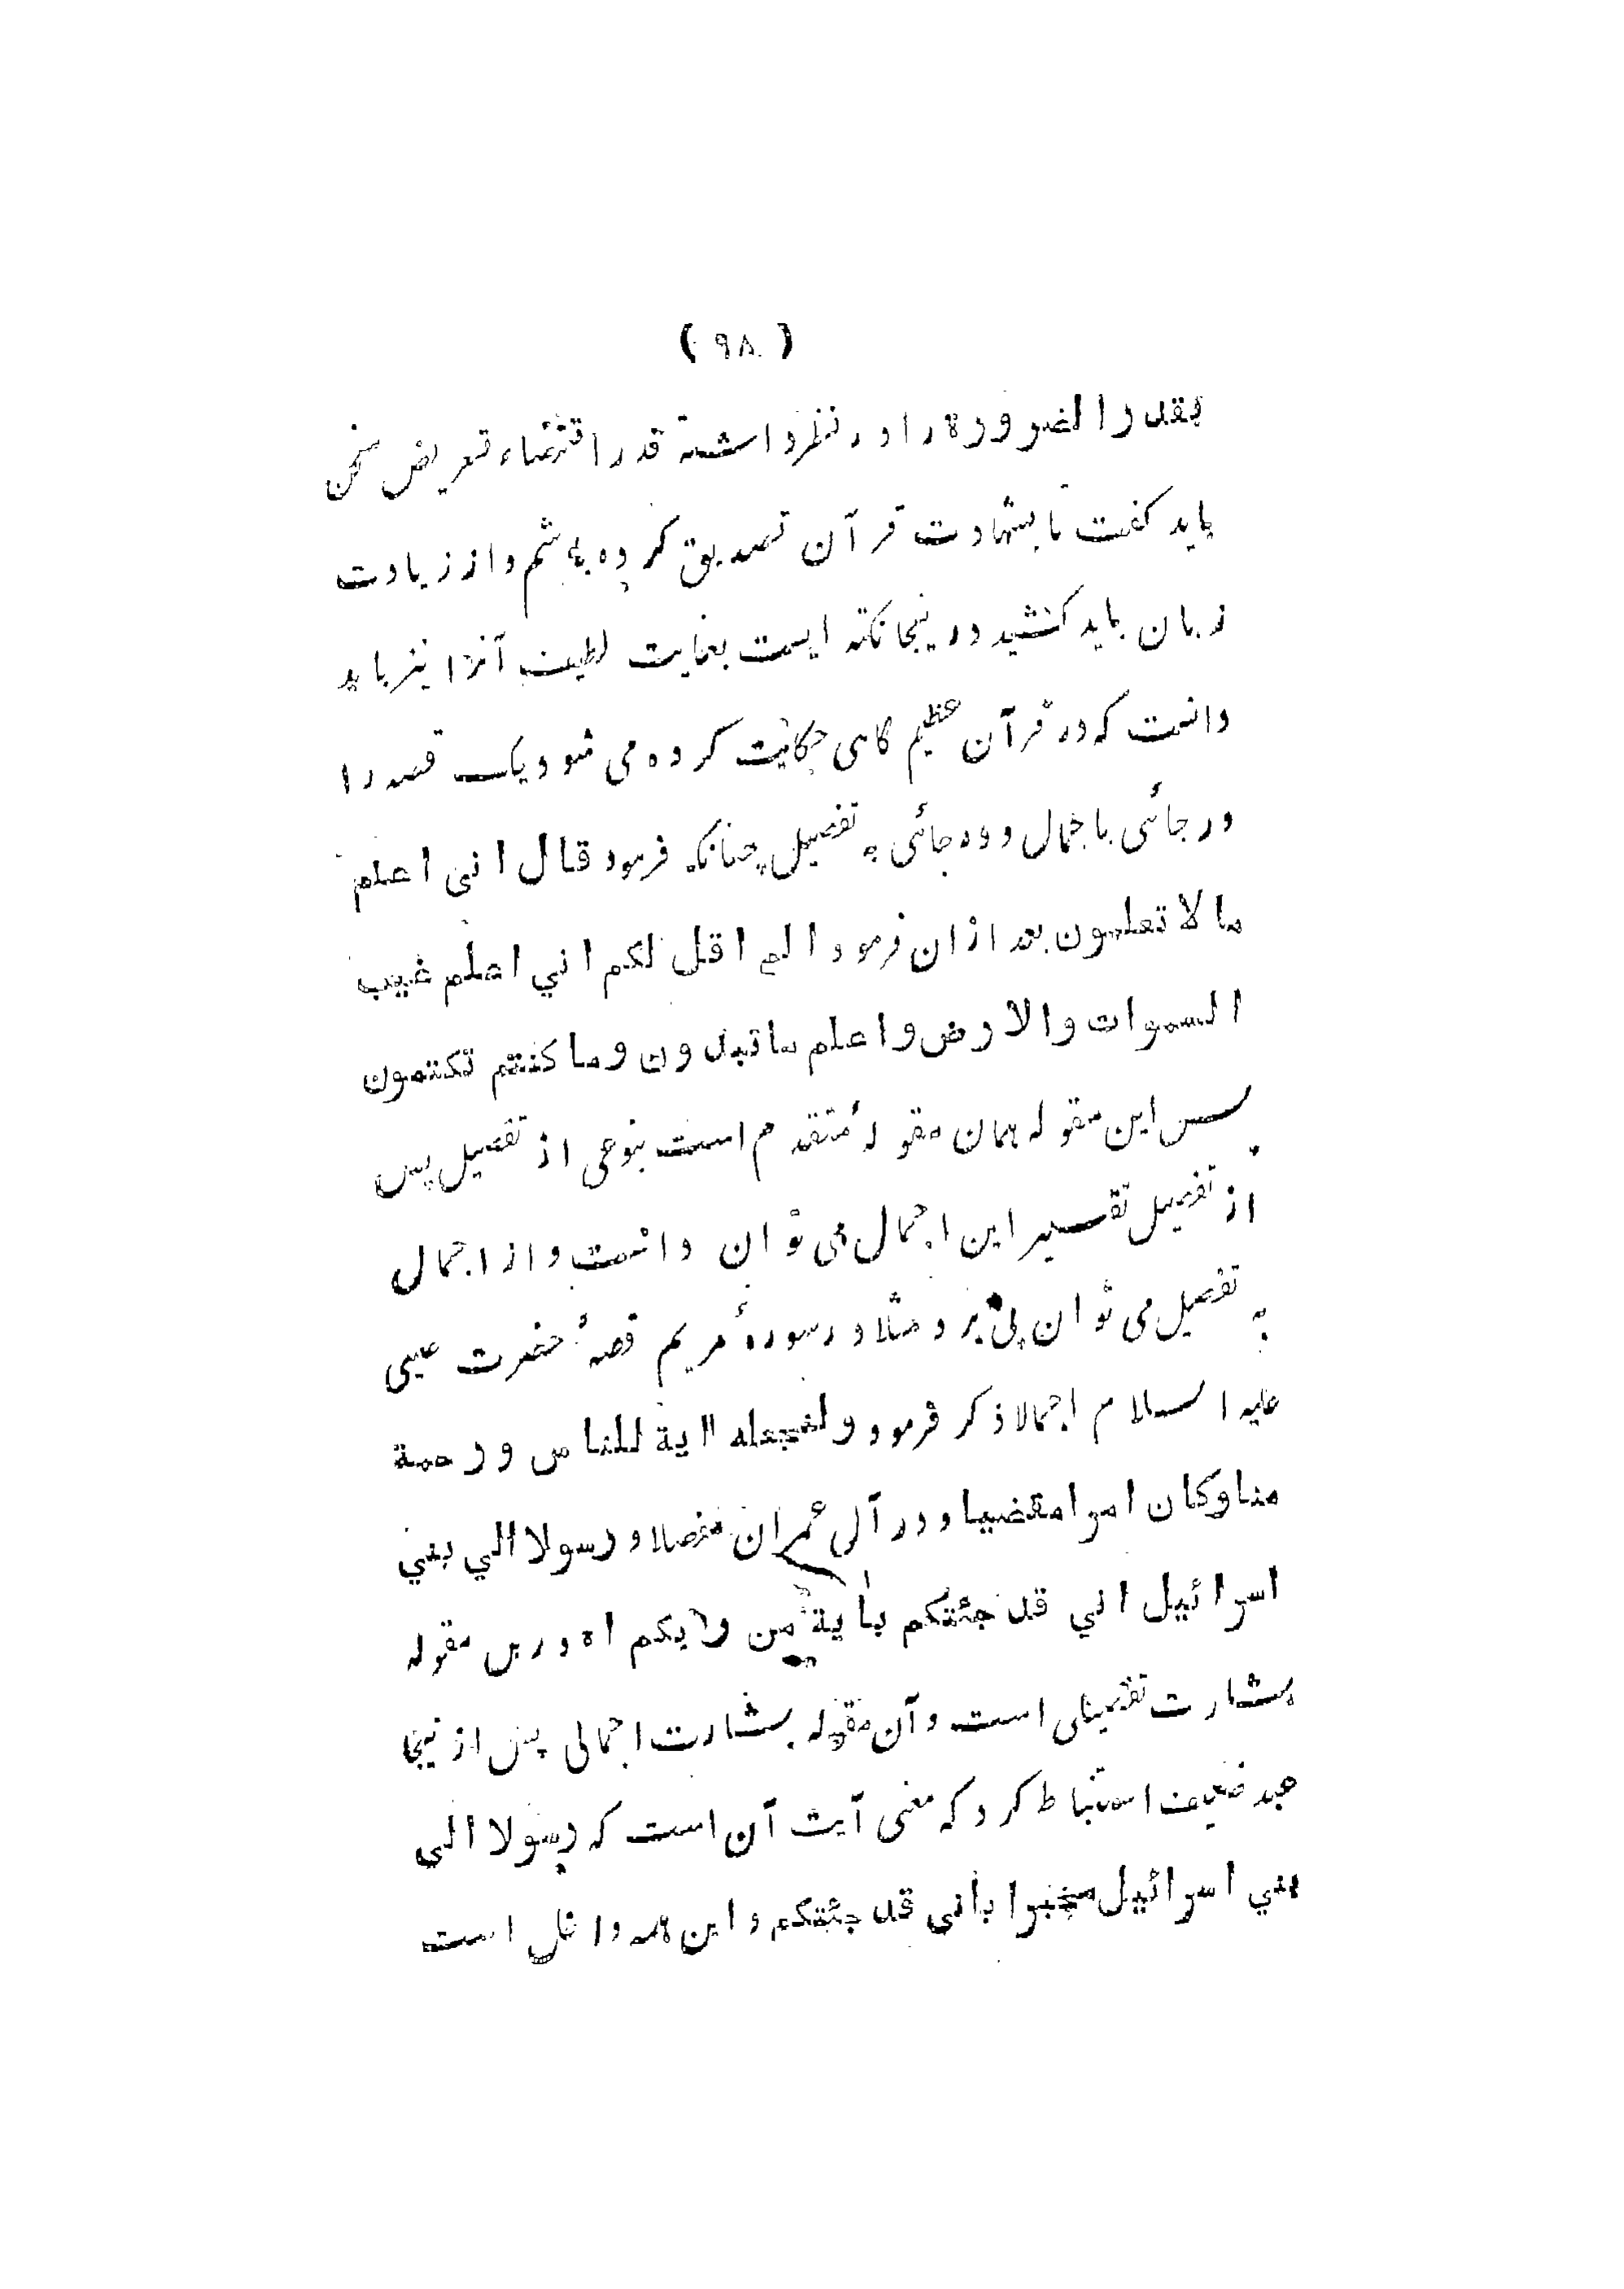 ( ۹۸ )
بقدر الضرورة را در نظر داشته قدر اقتضاء تعریض سخن
باید گفت تا بشهادت قرآن تصدیق کرده باشم و از زیادت
زبان باید کشید درینجا نکته ایست بغایت لطیف آنرا نیز باید
دانست که در قرآن عظیم گاهی حکایت کرده می شود یک قصه را
در جائی باجمال و در جائی به تفصیل چنانکه فرمود قال انی اعلم
ما لا تعلمون بعد ازان فرمود الم اقل لکم اني اعلم غیب
السموات والارض واعلم ما تبدون وما کنتم تکتمون
پس این مقوله همان مقولهٔ متقدم است بنوعی از تفصیل پس
از تفصیل تفسیر این اجمال می توان دانست و از اجمال
به تفصیل می توان پی برد مثلا در سورهٔ مریم قصهٔ حضرت عیسی
علیه السلام اجمالا ذکر فرمود ولنجعله اایة للناس ورحمة
منا وکان امرا مقضیا و در آل عمران مفصلا ورسولا الي بني
اسرائیل اني قد جئتکم بأیة من ربکم اه درین مقوله
بشارت تفصیلی است و آن مقوله بشارت اجمالی پس ازینجا
عبد ضعیف استنباط کرد که معنی آیت آن است که رسولا الي
بني اسرائیل مخبرا بأني قد جئتکم و این همه داخل است